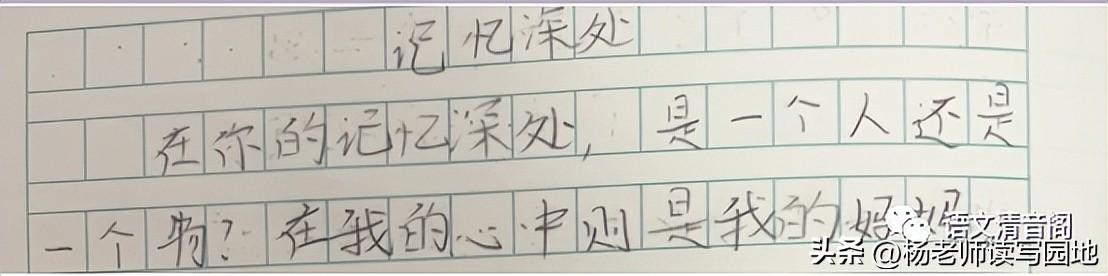 记忆深处
在你的记忆深处，是一个人还是
一个物？在我的心中则是我的妈妈
语文清音阁
头条@杨老师读写园地